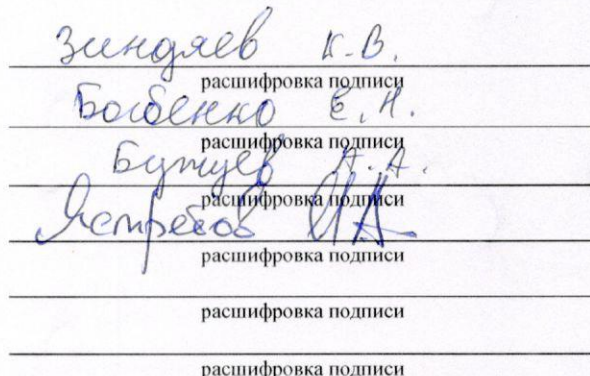 Зиндяев К.В.
расшифровка подписи
Е.Н.
расшифровка подписи
А.А.
расшифровка подписи
Ястребов
расшифровка подписи
расшифровка подписи
расшифровка подписи